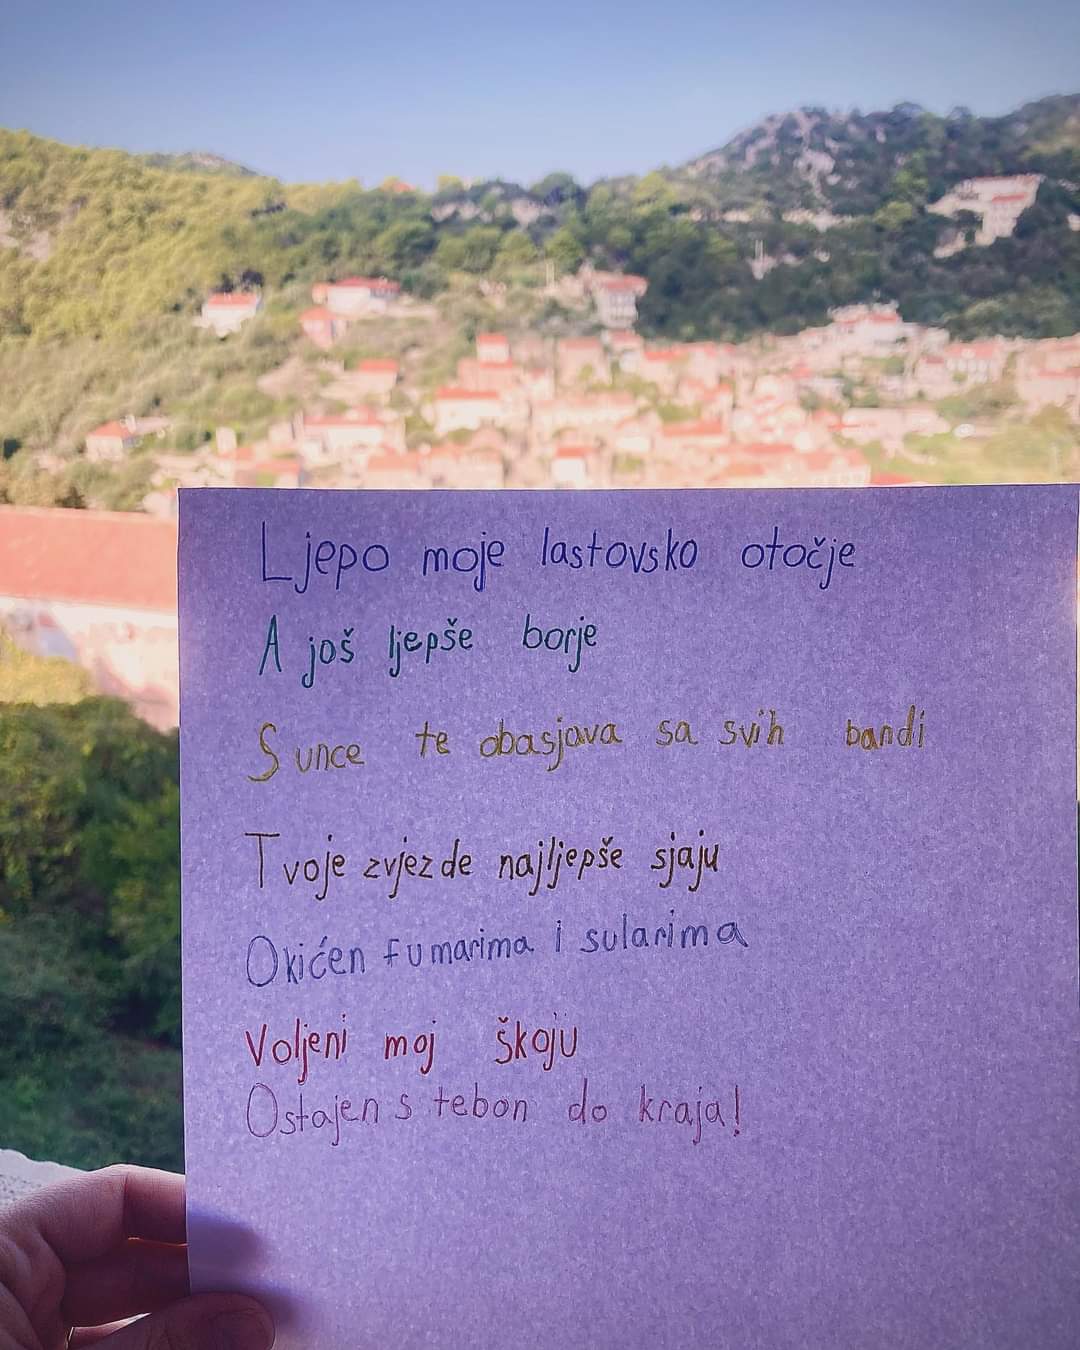 Ljepo moje lastovsko otočje
A još ljepše borje
Sunce te obasjava sa svih bandi
Tvoje zvjezde najljepše sjaju
Okićen fumarima i sularima
Voljeni moj škoju
Ostajen s tebon do kraja!